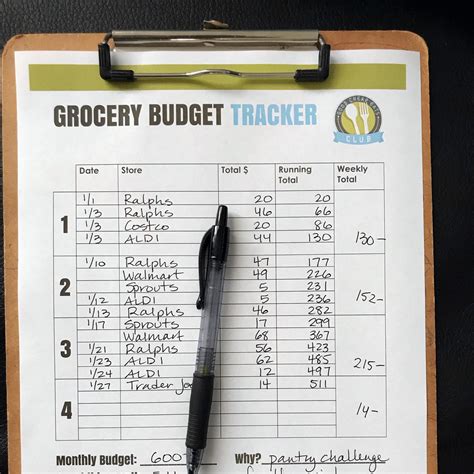 GROCERY BUDGET TRACKER
GOOD CHEAP EATS
CLUB
Date Store Total $ Running Total Weekly Total
1
1/1 Ralphs 20 20
1/3 Ralphs 46 66
1/3 Costco 20 86
1/3 ALDI 44 130 130-
2
1/10 Ralphs 47 177
Walmart 49 226
Sprouts 5 231
1/12 ALDI 5 236 152-
1/13 Ralphs 46 282
3
1/17 Sprouts 17 299
Walmart 68 367
1/21 Ralphs 56 423
1/23 ALDI 62 485 215-
1/24 ALDI 12 497
4
1/27 Trader Joe 14 511
14-
Monthly Budget: 600 Why? pantry challenge